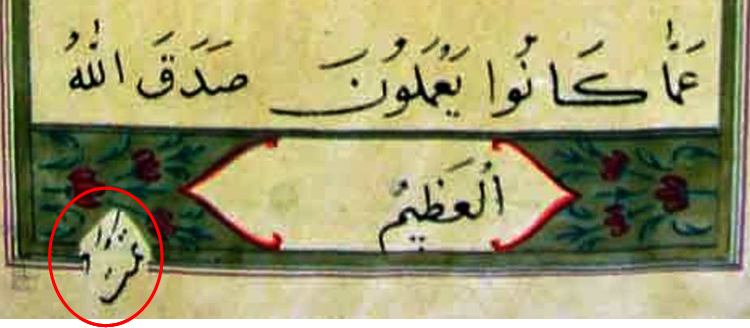 عَمَّا كَانُوا يَعْمَلُونَ صَدَقَ اللّٰهُ
الْعَظِيمُ